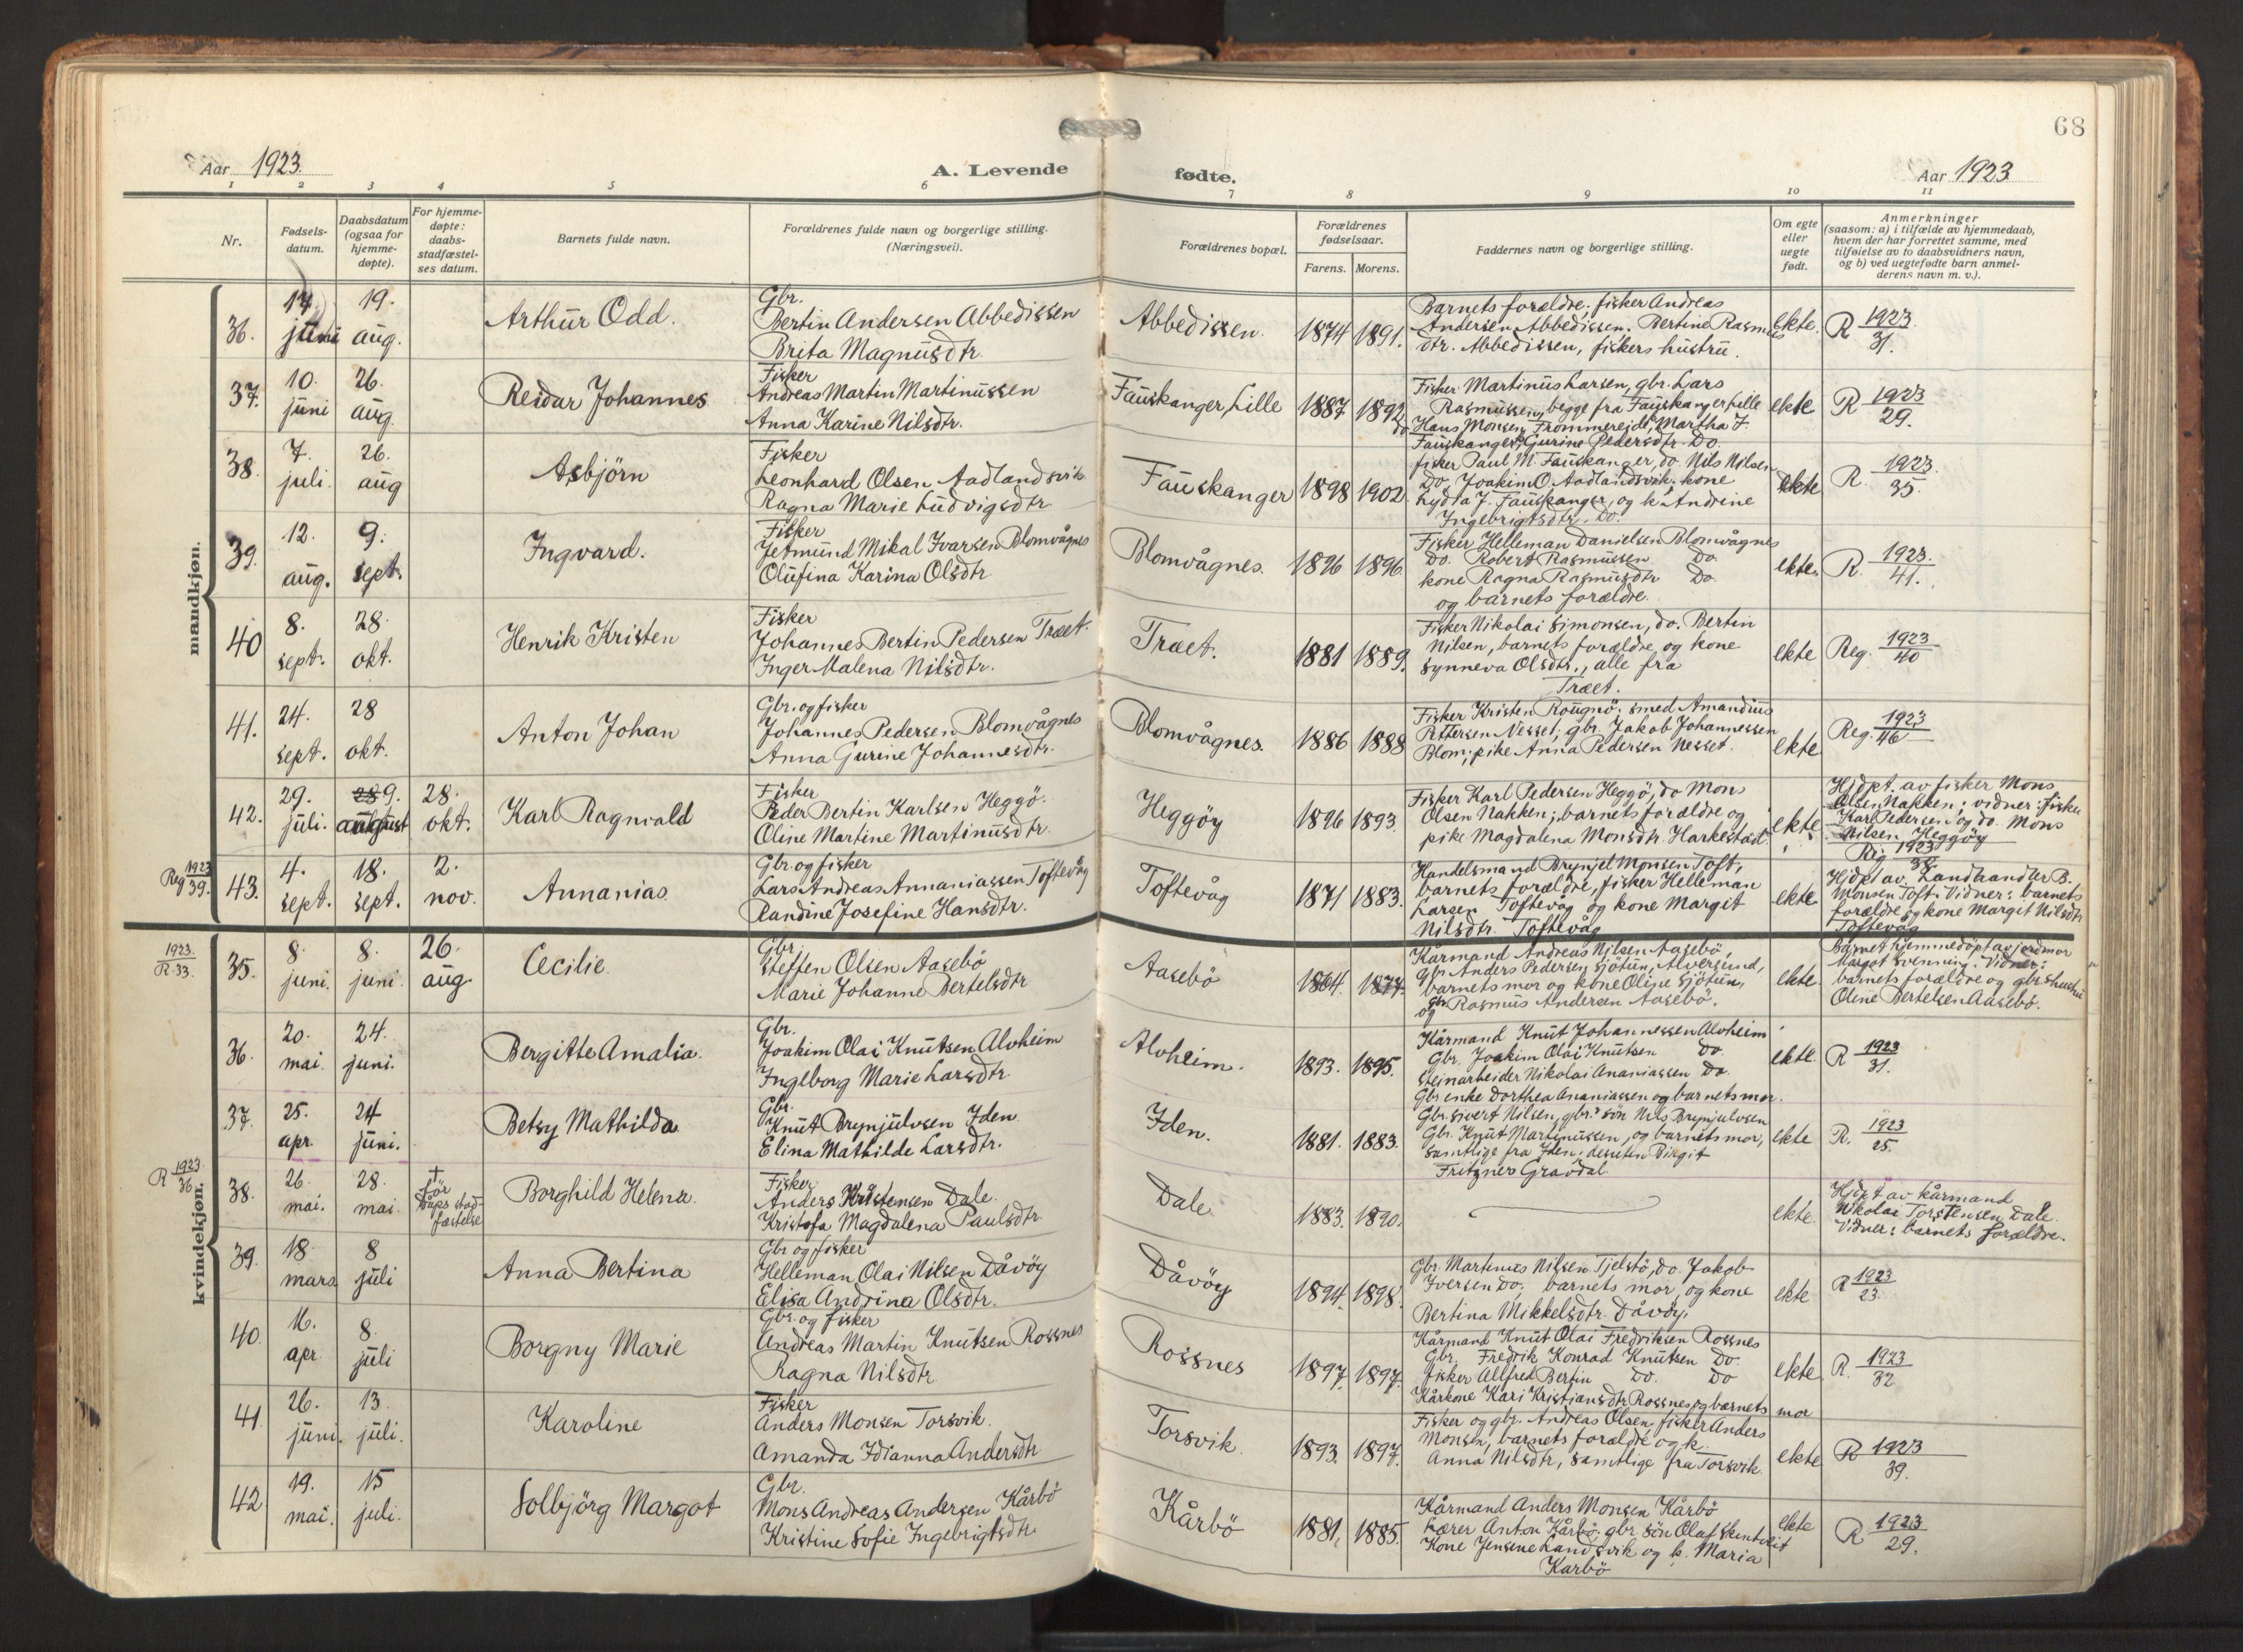 68
Aar 1923.
A. Levende fødte.
Aar 1923
1 2 3 4 5 6 7 8 9 10 11
Nr.
Fødsels-
datum.
Daabsdatum
(ogsaa for
hjemme-
døpte).
For hjemme-
døpte:
daabs-
stadfæstel-
ses datum.
Barnets fulde navn.
Forældrenes fulde navn og borgerlige stilling.
(Næringsvei).
Forældrenes bopæl.
Forældrenes
fødselsaar.
Farens. Morens.
Faddernes navn og borgerlige stilling.
Om egte
eller
uegte
født.
Anmerkninger
(saasom: a) i tilfælde av hjemmedaab,
hvem der har forrettet samme, med
tilføielse av to daabsvidners navn,
og b) ved uegtefødte barn anmel-
derens navn m. v.).
mandkjøn.
36.
14. juni
19. aug.
Arthur Odd.
Gbr.
Bertin Andersen Abbedissen
Brita Magnusdtr.
Abbedissen.
1874 1891.
Barnets forældre. fisker Andreas
Andersen Abbedissen. Bertine Rasmus
dtr. Abbedissen, fiskers hustru.
ekte.
R 1923 31.
37.
10. juni
26. aug.
Reidar Johannes
Fisker
Andreas Martin Martinussen
Anna Karine Nilsdtr.
Fauskanger, Lille
1887 1892
Fisker Martinus Larsen, gbr. Lars
Rasmussen, begge fra Fauskanger Lille
do Hans Monsen Frommereide, Martha J.
Fauskanger, Gurine Pedersdtr. Do.
ekte
R 1923 29.
38.
7. juli.
26. aug
Asbjörn
Fisker
Leonhard Olsen Aadlandsvik
Ragna Marie Ludvigsdtr.
Fauskanger
1898 1902.
fisker Paul M. Fauskanger, do. Nils Nilsen
Do, Joakim O. Aadlandsvik, kone
Lydia J. Fauskanger, og k. Andrine
Ingebrigtsdtr. Do.
ekte
R. 1923. 35.
39.
12. aug.
9. sept.
Ingvard.
Fisker
Jetmund Mikal Ivarsen Blomvågnes
Olufina Karina Olsdtr.
Blomvågnes.
1896 1896
Fisker Helleman Danielsen Blomvågnes
Do. Robert Rasmussen Do.
kone Ragna Rasmusdtr Do.
og barnets forældre.
ekte.
R. 1923. 41.
40
8. sept.
28. okt.
Henrik Kristen
Fisker
Johannes Bertin Pedersen Træet.
Inger Malena Nilsdtr.
Træet.
1881 1889.
Fisker Nikolai Simonsen, do. Bertin
Nilsen, barnets forældre, og kone
Synneva Olsdtr., alle fra
Træet.
ekte
Reg. 1923 40
41.
24. sept.
28 okt.
Anton Johan
Gbr. og fisker
Johannes Pedersen Blomvågnes
Anna Gurine Johannesdtr.
Blomvågnes.
1886 1888
Fisker Kristen Rougnö; smed Amandius
Pettersen Nesset; gbr. Jakob Johannessen
Blom; pike Anna Pedersen Nesset.
ekte
Reg. 1923 46
42.
29. juli.
28 9. august
28. okt.
Karl Ragnvald
Fisker
Peder Bertin Karlsen Heggö.
Oline Martine Martinusdtr.
Heggöy
1896 1893.
Fisker Karl Pedersen Heggö, do Mons
Olsen Nakken; barnets forældre og
pike Magdalena Monsdtr. Harkestad.
ekte
Hjdpt. av fisker Mons
Olsen Nakken; vidner: fisker
Karl Pedersen og do. Mons
Nilsen, Heggöy
Reg. 1923 38.
Reg 1923 39.
43.
4. sept.
18. sept.
2. nov.
Annanias
Gbr. og fisker
Lars Andreas Annaniassen Toftevåg
Randine Josefine Hansdtr.
Toftevåg
1871 1883.
Handelsmand Brynjel Monsen Toft,
barnets forældre, fisker Helleman
Larsen Toftevåg og kone Margit
Nilsdtr. Toftevåg
ekte
Hjdpt av Landhandler B.
Monsen Toft. Vidner: barnets
forældre og kone Margit Nilsdtr
Toftevåg
kvindekjøn.
1923. R. 33.
35.
8. juni.
8. juni.
26. aug.
Cecilie.
Gbr.
Steffen Olsen Aasebö
Marie Johanne Bertelsdtr
Aasebö
1864. 1877.
Kårmand Andreas Nilsen Aasebö,
Gbr. Anders Pedersen Sjötun, Alversund,
barnets mor og kone Oline Sjötun,
og gbr Rasmus Andersen Aasebö.
ekte
Barnet hjemmedöpt av jordmor
Margot Svenning. Vidner:
barnets forældre og gbr.s hustru
Oline Bertelsen Aasebö.
36.
20. mai.
24. juni.
Bergitte Amalia.
Gbr.
Joakim Olai Knutsen Alvheim
Ingeborg Marie Larsdtr.
Alvheim.
1893. 1895.
Kårmand Knut Johannessen Alvheim
Gbr. Joakim Olai Knutsen Do.
Steinarbeider Nikolai Ananiassen Do.
Gbr enke Dorthea Ananiassen og barnets mor.
ekte
R 1923 31.
37.
25. apr.
24 juni.
Betsy Mathilda
Gbr.
Knut Brynjulvsen Iden
Elina Mathilde Larsdtr.
Iden.
1881. 1883.
Gbr. Sivert Nilsen, gbr.s sön Nils Brynjulvsen
Gbr. Knut Martinussen, og barnets mor,
samtlige fra Iden; desuten Birgit
Fritzner Gravdal
ekte
R. 1923 25.
R 1923 36.
38.
26. mai.
28. mai
† för dåps stad-
fæstelse
Borghild Helena.
Fisker
Anders Kristensen Dale.
Kristofa Magdalena Paulsdtr
Dale.
1883. 1890.
ekte.
Hjdpt av kårmand
Nikolai Torstensen Dale.
Vidner: barnets forældre.
39.
18. mars.
8 juli
Anna Bertina
Gbr og fisker
Helleman Olai Nilsen Dåvöy
Elisa Andrina Olsdtr.
Dåvöy
1894. 1898.
Gbr. Martinus Nilsen Tjelstö, do. Jakob
Iversen Do, barnets mor, og kone
Bertina Mikkelsdtr. Dåvöy.
ekte
R 1923 23.
40.
16. apr.
8. juli
Borgny Marie
Gbr. og fisker
Andreas Martin Knutsen Rossnes
Ragna Nilsdtr
Rossnes
1897. 1897.
Kårmand Knut Olai Fredriksen Rossnes
Gbr. Fredrik Konrad Knutsen Do.
fisker Allfred Bertin Do. Do
Kårkone Kari Kristiansdtr Rossnes og barnets mor
ekte
R. 1923 32.
41.
26. juni.
13. juli.
Karoline
Fisker
Anders Monsen Torsvik.
Amanda Idianna Andersdtr
Torsvik.
1893. 1897.
Fisker og gbr. Andreas Olsen, fisker Anders
Monsen, barnets forældre og k.
Anna Nilsdtr, samtlige fra Torsvik.
ekte
R 1923 39.
42
19. mai.
15 juli.
Solbjörg Margot
Gbr.
Mons Andreas Andersen Kårbö
Kristine Sofie Ingebrigtsdtr
Kårbö
1881. 1885.
Kårmand Anders Monsen Kårbö
Lærer Anton Kårbö; gbr sön Olaf
Kone Jensine Landsvik og k. Maria
Karbö
ekte
R 1923 29.